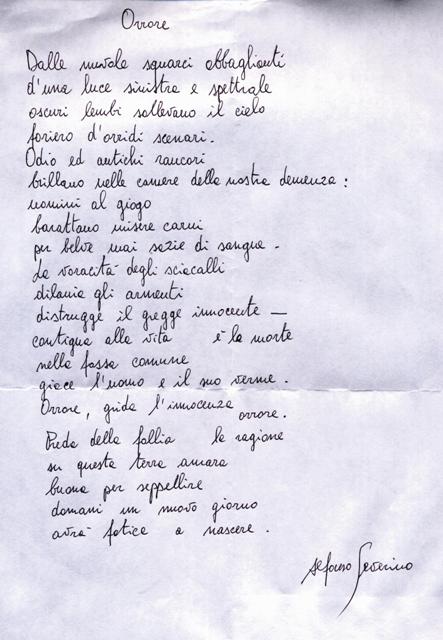 Orrore
Dalle nuvole squarci abbaglianti
d'una luce sinistra e spettrale
oscuri lembi sollevano il cielo
foriero d'orridi scenari.
Odio ed antichi rancori
brillano nelle camere della nostra demenza:
uomini al giogo
barattano misere carni
per belve mai sazie di sangue.
La voracità degli sciacalli
dilania gli armenti
distrugge il gregge innocente —
contigua alla vita è la morte
nella fossa comune
giace l'uomo e il suo verme.
Orrore, grida l'innocenza orrore.
Preda della follia la ragione
su questa terra amara
buona per seppellire
domani un nuovo giorno
avrà fatica a nascere.
Alfonso Severino